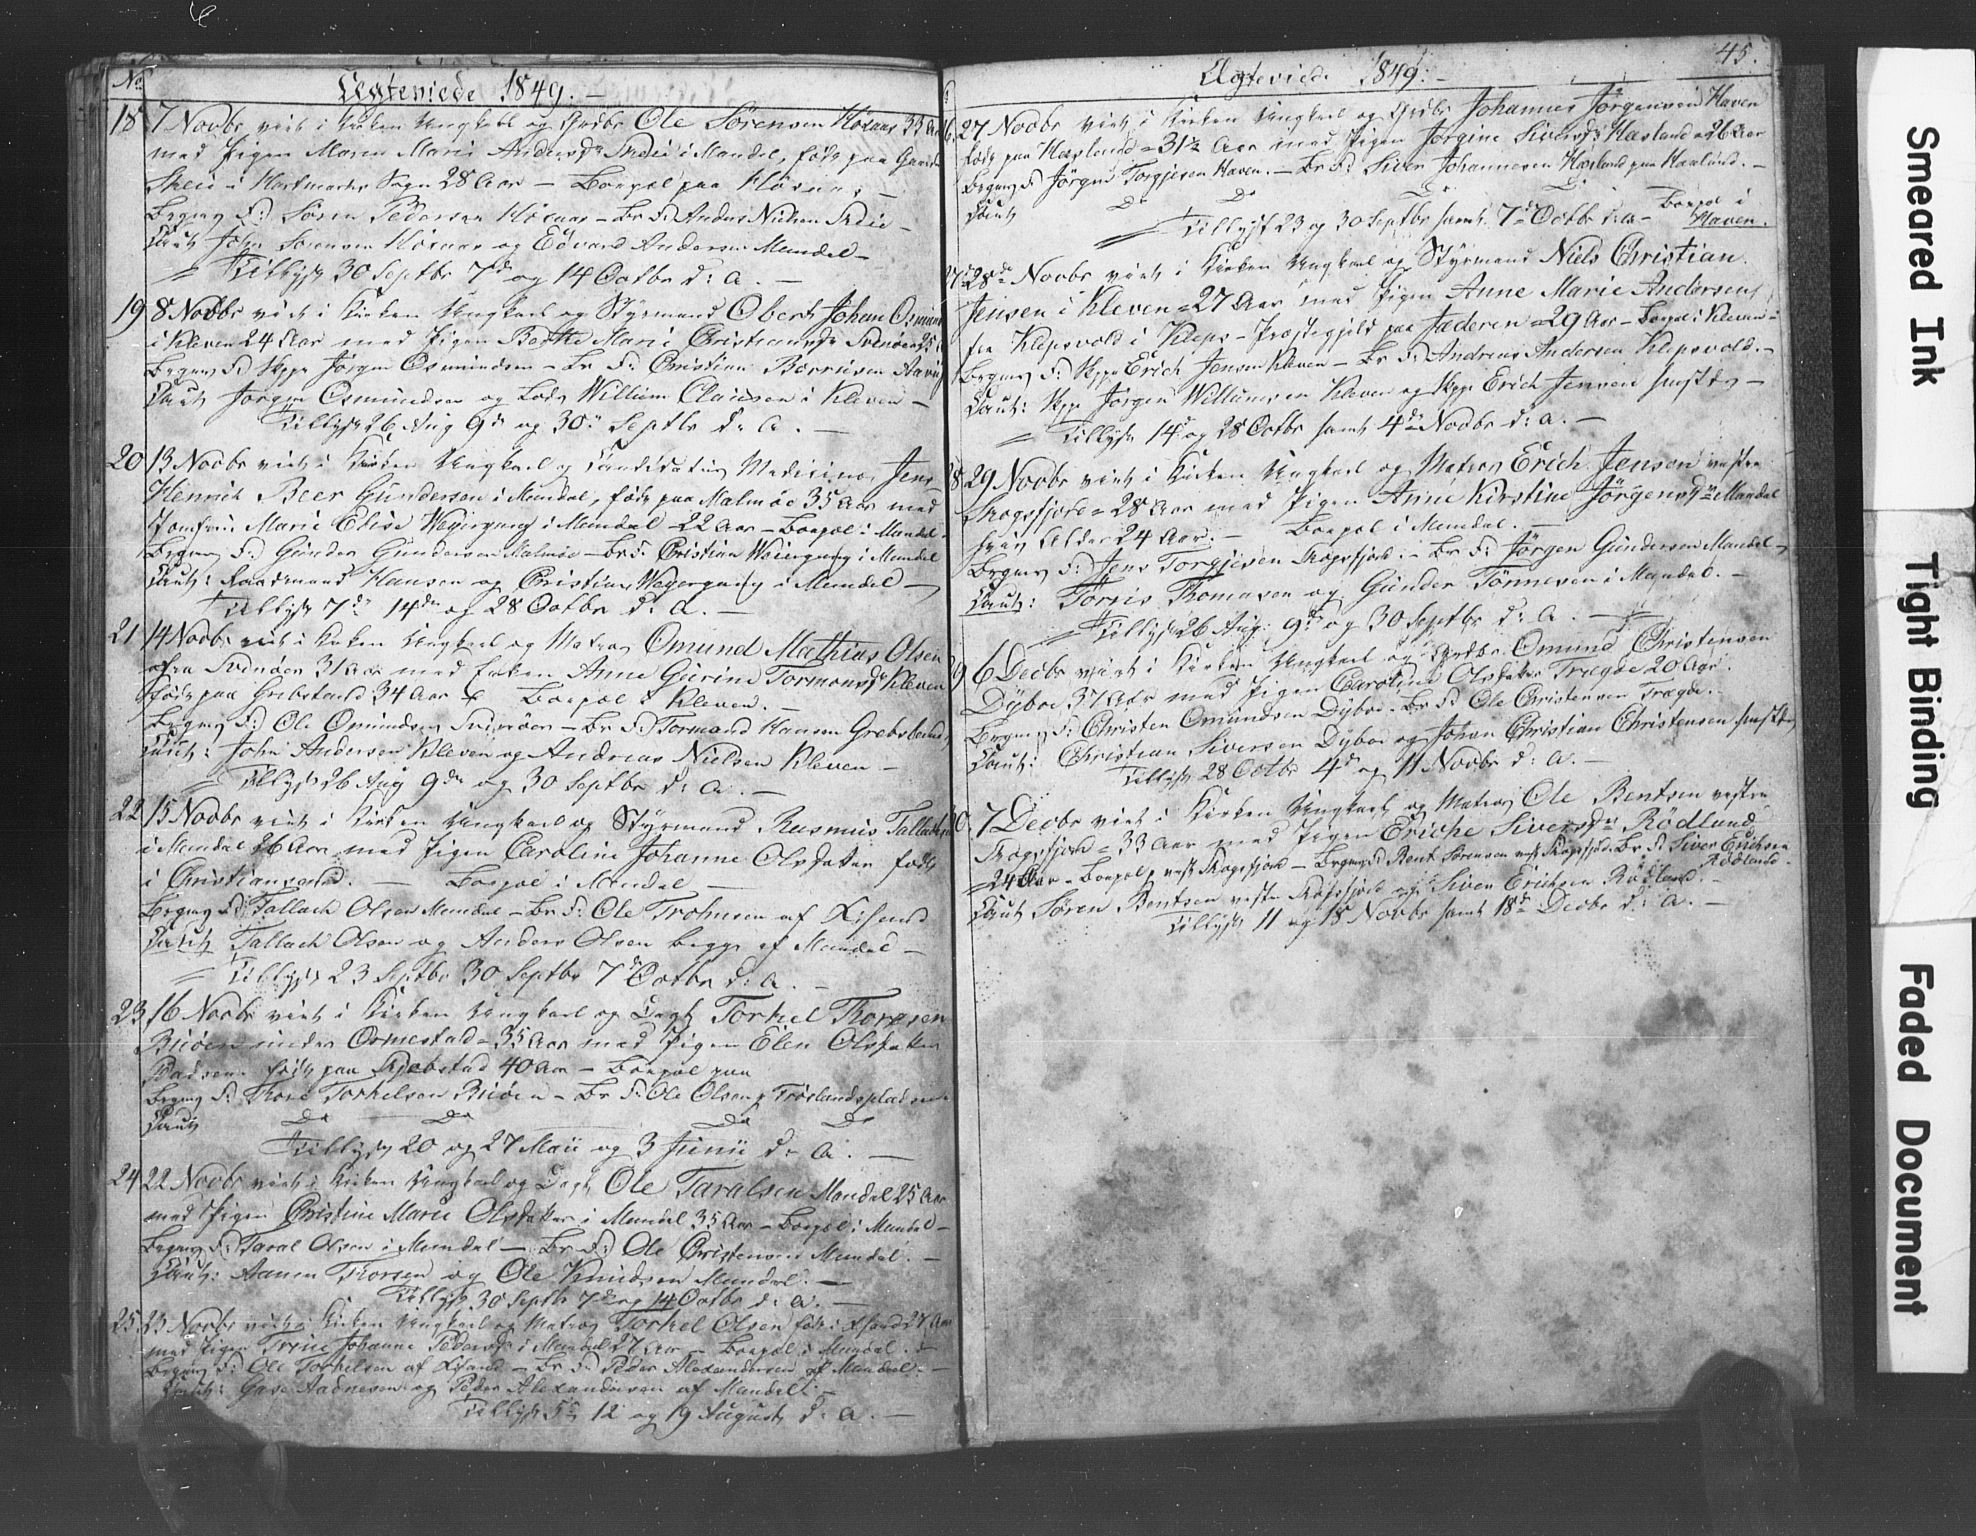 No
Ægteviede 1849. –
18 7 Novbr viet i Kirken Ungkarl og Grdbr Ole Sørensen Høxaas 33 Aar
med Pigen Maren Marie Andersdr Skeie i Mandal, født paa
Skeie i Hartmarks Sogn 28 Aar – Boepæl paa
Brgms F: Søren Pedersen Høxaas – Br F: Anders Nielsen Skeie –
Caut John Sørensen Høxaas og Edvard Andersen Mandal –
Tillyst 30 Septbr 7de og 14 Octbr d: A. –
19 8 Novbr viet i Kirken Ungkarl og Styrmand Obert Johan
i Kleven 24 Aar med Pigen Berthe Marie Christiansdr Svinøer 25
Brgms F: Skppr Jørgen Osmundsen – Br F: Christian
Caut Jørgen Osmundsen og Lods Willium Clausen i Kleven –
Tillyst 26 Aug 9de og 30 Septbr d: A. –
20 13 Novbr viet i Kirken Ungkarl og Candidatus Medicina Jens
Henrich Beer Gundersen i Mandal, født paa Malmöe 35 Aar med
Jomfru Marie Elise Weyergang i Mandal 22 Aar – Boepæl i Mandal
Brgms F: Gunder Gundersen Malmöe – Br F: Christian Weiergang i Mandal
Caut: Raadmand Hansen og Christian Weyergang i Mandal –
Tillyst 7de 14de og 28 Octbr d: A. –
21 14 Novbr viet i Kirken Ungkarl og Matros Omund Mathias Olsen
fra Svinøer 31 Aar med Enken Anne Gurine Tormondsdr Kleven
født paa Grebstad 34 Aar – Boepæl i Kleven. –
Brgms F: Ole Omundsen Svinøer – Br F: Tormand Hansen
Caut: John Andersen Kleven og Andreas Nielsen Kleven –
Tillyst 26 Aug 9de og 30 Septbr d: A. –
22 15 Novbr viet i Kirken Ungkarl og Styrmand Rasmus Tallaksen
i Mandal 26 Aar med Pigen Caroline Johanne Olsdatter født
i Christiansand. – Boepæl i Mandal –
Brgms F: Tallack Olsen Mandal – Br F: Ole af Xsand
Caut Tallack Olsen og Anders Olsen begge af Mandal –
Tillyst 23 Septbr 30 Septbr 7de Octbr d: A. –
23 16 Novbr viet i Kirken Ungkarl og Dagl Torkel Thoresen
Buöen under Ormestad 35 Aar med Pigen Elen Olsdatter
født paa 40 Aar – Boepæl paa
Brgms F: Thore Torkelsen Buöen – Br F: Ole Olsen
Caut Do Do Do Do
Tillyst 20 og 27 Maii og 3 Junii d: A. –
24 22 Novbr viet i Kirken Ungkarl og Dagl Ole Taralsen Mandal 25 Aar
med Pigen Christine Marie Olsdatter i Mandal 35 Aar – Boepæl i Mandal –
Brgms F: Taral Olsen i Mandal – Br F: Ole Christensen Mandal. –
Caut: Aanen Thorsen og Ole Knudsen Mandal. –
Tillyst 30 Septbr 7de og 14 Octbr d: A. –
25 23 Novbr viet i Kirken Ungkarl og Matros Torkel Olsen født i Xsand 27 Aar
med Pigen Trine Johanne Pedersdr i Mandal 27 Aar – Boepæl i Mandal. –
Brgms F: Ole Torkelsen af Xsand – Br F: Peder Alexandersen af Mandal. –
Caut: Aadnesen og Peder Alexandersen af Mandal. –
Tillyst 5te 12 og 19 August d: A. –
45.
Ægteviede 1849. –
27 Novbr viet i Kirken Ungkarl og Grdbr Johannes Jørgensen Haven
født paa Hæsland 31½ Aar med Pigen Jørgine Siversdr Hæsland 26 Aar
Brgms F: Jørgen Torgjesen Haven. – Br F: Siver Johannesen Hæsland paa Haaland. –
Caut Do Do Do Do Boepæl i
Tillyst 23 og 30 Septbr samt 7de Octbr d: A – Haven.
28de Novbr viet i Kirken Ungkarl og Styrmand Niels Christian
Jensen i Kleven 27 Aar med Pigen Anne Marie Andersdr
fra Klepsvold i Kleps – Præstegjeld paa Jæderen 29 Aar – Boepæl i Kleven –
Brgms F: Skppr Erich Jensen Kleven – Br F: Andreas Andersen Klepsvold. –
Caut: Skpp Jørgen Willumsen Kleven og Skpp Erich Jensen samstds –
Tillyst 14de og 28 Octbr samt 4de Novbr d: A. –
29 Novbr viet i Kirken Ungkarl og Matros Erich Jensen vestre
Skogsfjord 28 Aar med Pigen Anne Kirstine Jørgensdr Mandal
hvis Alder 24 Aar. – Boepæl i Mandal. –
Brgms F: Jens Torgjesen Skogsfjord. – Br F: Jørgen Gundersen Mandal –
Caut: Torris Thomasen og Gunder Tønnesen i Mandal. –
Tillyst 26 Aug: 9de og 30 Septbr d: A. –
6 Decbr viet i Kirken Ungkarl og Grdbr Omund Christensen
Dyboe 37 Aar med Pigen Caroline Olsdatter Tregde 20 Aar.
Brgms F: Christen Omundsen Dyboe. Br F: Ole Christensen Tregde. –
Caut: Christian Siversen Dyboe og Johan Christian Christensen samstds
Tillyst 28 Octbr 4de og 11 Novbr d: A. –
7 Decbr viet i Kirken Ungkarl og Matros Ole Bentsen vestre
Skogsfjord 33 Aar med Pigen Eriche Siversdr Rödland
24 Aar – Boepæl vest Skogsfjord – Brgms F: Bent Sørensen vest Skogsfjord. Br F: Siver Erichsen
Rödland.
Caut Søren Bentsen vestre Skogsfjord og Siver Erichsen Rödland. –
Tillyst 11 og 18 Novbr samt Decbr d: A. –
Smeared Ink
Tight Binding
Faded Document